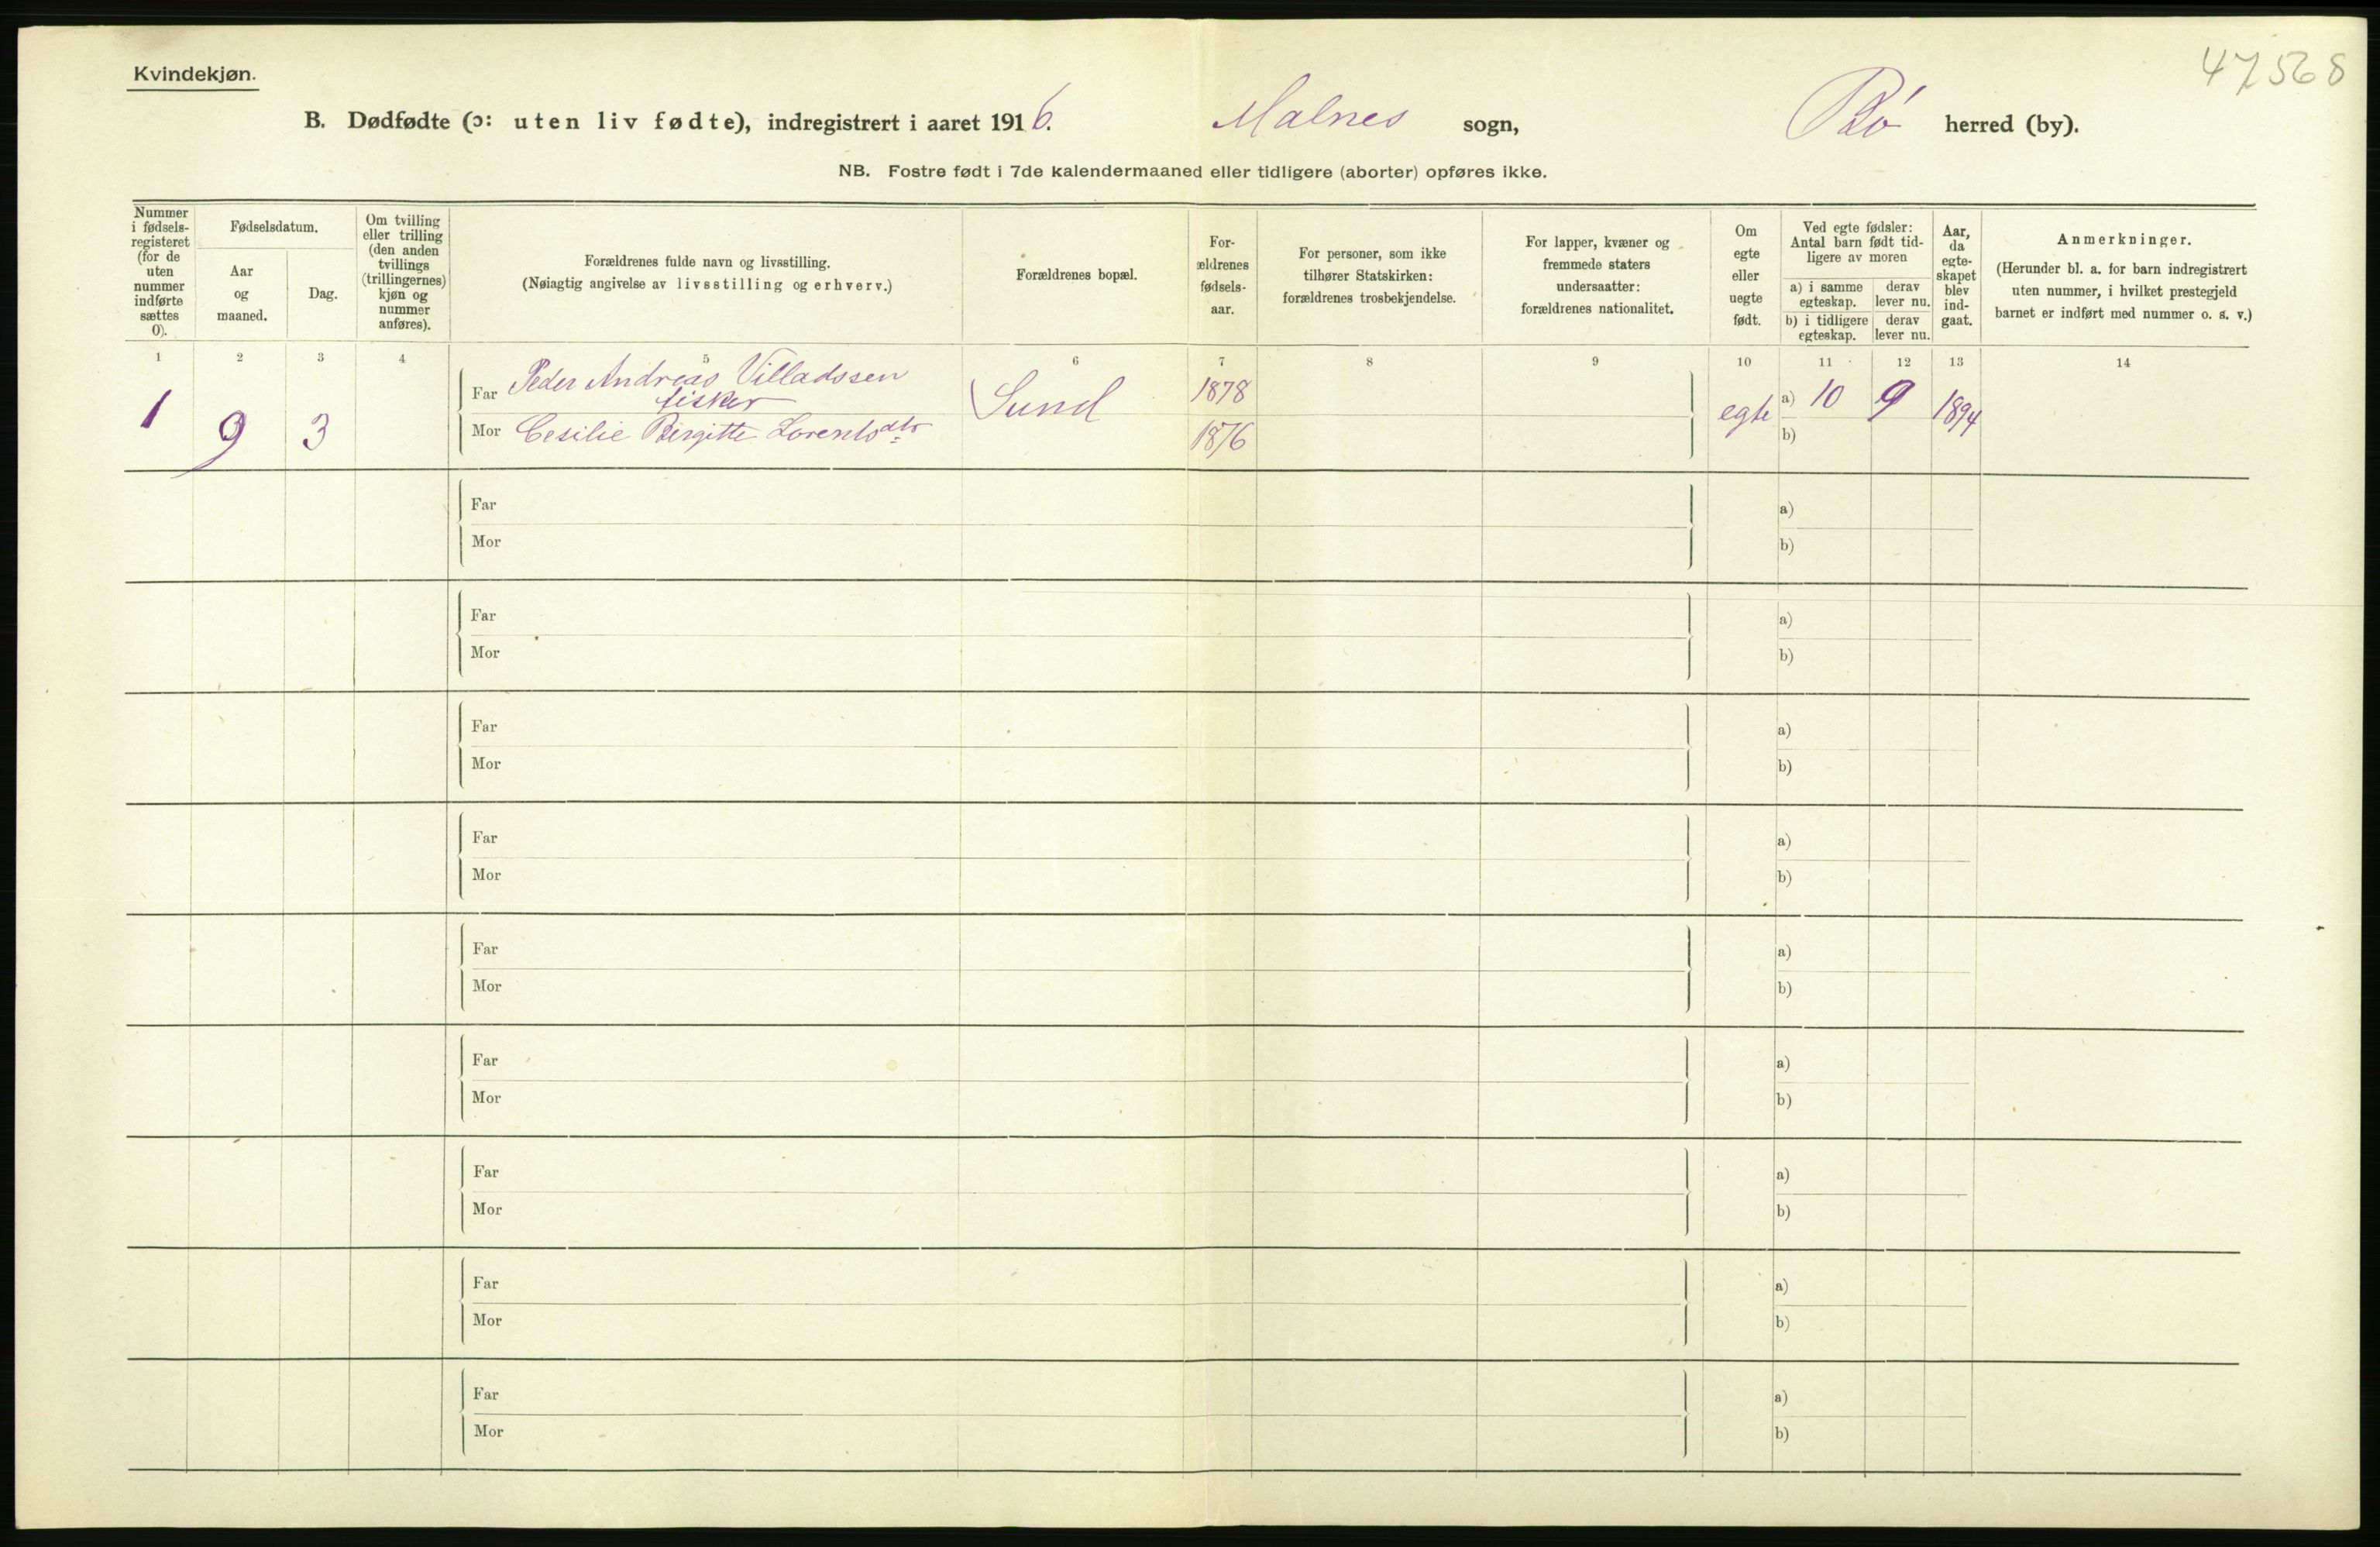 47568
Kvindekjøn.
B. Dødfødte (ɔ: uten liv fødte), indregistrert i aaret 1916. Malnes sogn, Bø herred (by).
NB. Fostre født i 7de kalendermaaned eller tidligere (aborter) opføres ikke.
Nummer
i fødsels-
registeret
(for de
uten
nummer
indførte
sættes
0).
Fødselsdatum.
Aar
og
maaned.
Dag.
Om tvilling
eller trilling
(den anden
tvillings
(trillingernes)
kjøn og
nummer
anføres).
Forældrenes fulde navn og livsstilling.
(Nøiagtig angivelse av livsstilling og erhverv.)
Forældrenes bopæl.
For-
ældrenes
fødsels-
aar.
For personer, som ikke
tilhører Statskirken:
forældrenes trosbekjendelse.
For lapper, kvæner og
fremmede staters
undersaatter:
forældrenes nationalitet.
Om
egte
eller
uegte
født.
Ved egte fødsler:
Antal barn født tid-
ligere av moren
a) i samme
egteskap.
derav
lever nu.
b) i tidligere
egteskap.
derav
lever nu.
Aar,
da
egte-
skapet
blev
ind-
gaat.
Anmerkninger.
(Herunder bl. a. for barn indregistrert
uten nummer, i hvilket prestegjeld
barnet er indført med nummer o. s. v.)
1 2 3 4 5 6 7 8 9 10 11 12 13 14
1 9 3
Far Peder Andreas Villadssen
fisker
Mor Cesilie Birgitte Lorentsdtr
Sund
1878
1876
egte
a) 10 9 1894
b)
Far a)
Mor b)
Far a)
Mor b)
Far a)
Mor b)
Far a)
Mor b)
Far a)
Mor b)
Far a)
Mor b)
Far a)
Mor b)
Far a)
Mor b)
Far a)
Mor b)